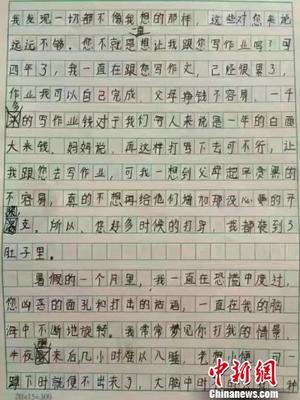 我发现一切都不像我想的那样，这些对您来说
远远不够。您不就是想让我跟您写作业吗？可
四年了，我一直在跟您写作文，已经很累了，
作业我可以自己完成，父母挣钱不容易，一千
多的写作业钱对于我们穷人来说是一年的白面
大米钱。妈妈说，再这样打骂下去可不行，让
我跟您去写作业，可我一想到父母起早贪黑的
不容易，真的不想再给他们增加那没必要的开
支。所以，您好多时候的打骂，我都装到了
肚子里。
暑假的一个月里，我一直在恐慌中度过，
您凶恶的面孔和打出的话语，一直在我的脑
海中不断地旋转。我常常梦见你打我的情景，
半夜醒来后几小时难以入睡，老想小便，可一
蹲下时就便不出来了，大脑中时
一种
20×15=300
中新网